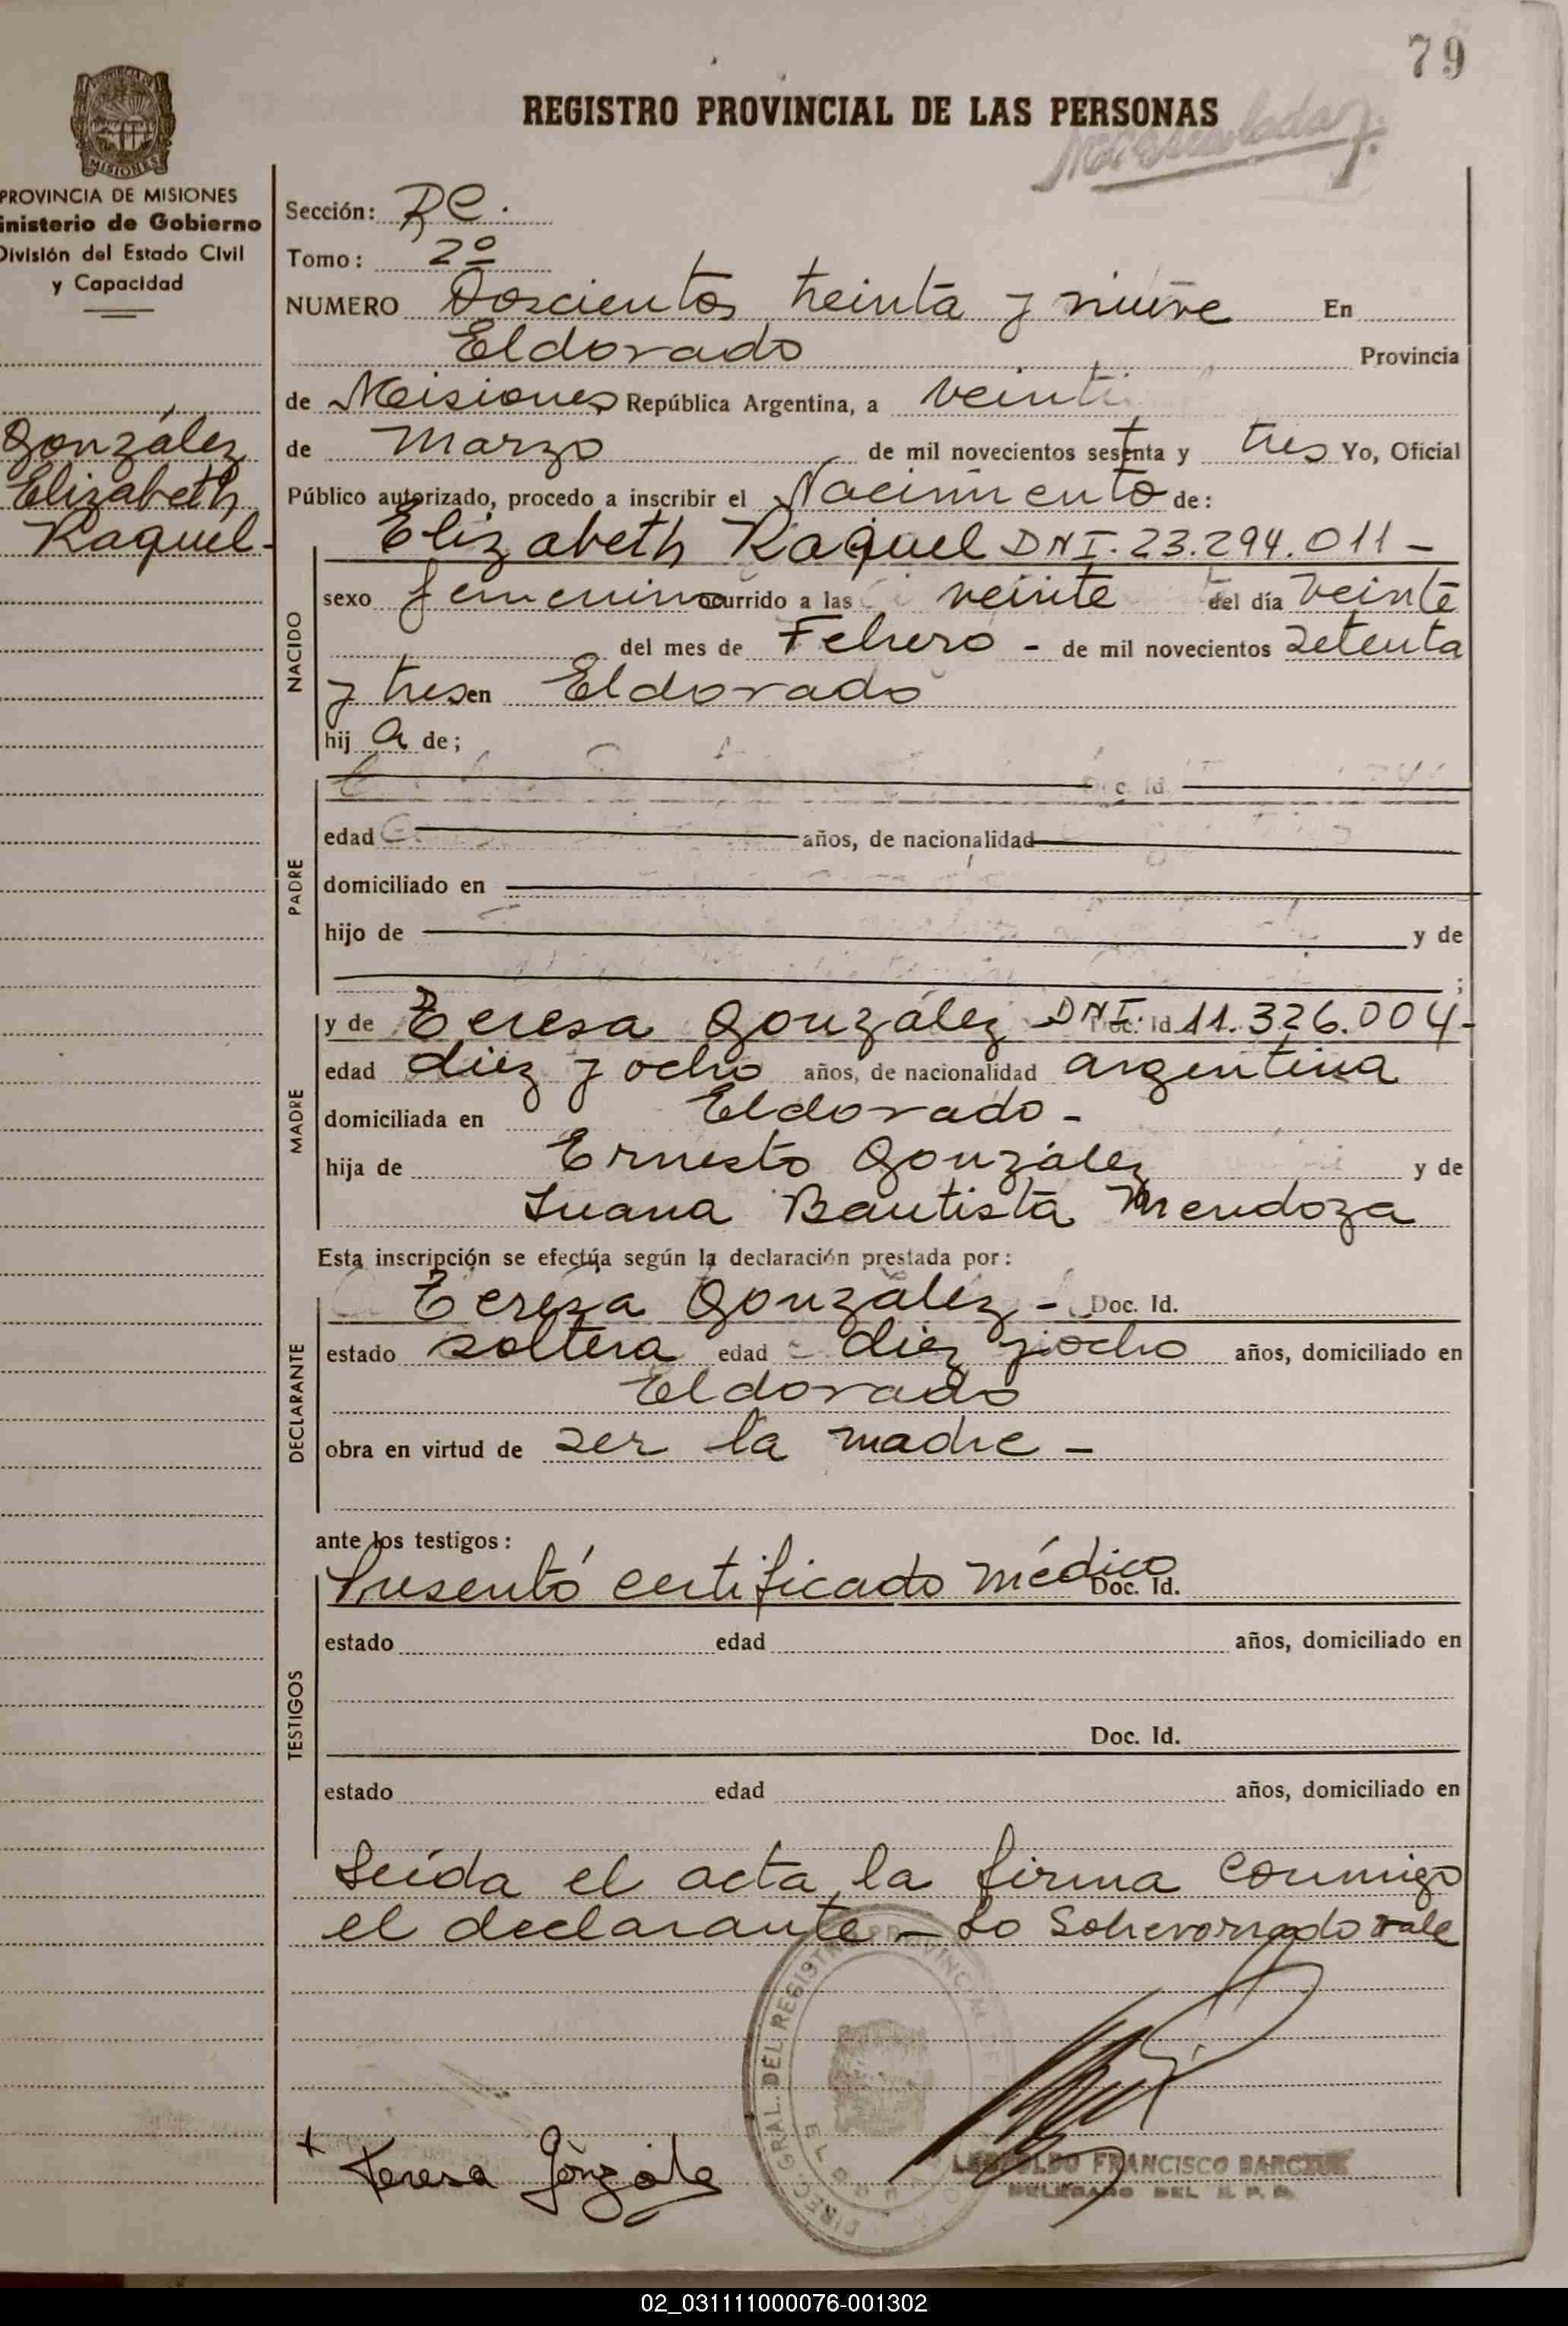 79
REGISTRO PROVINCIAL DE LAS PERSONAS
MISIONES
PROVINCIA DE MISIONES
inisterio de Gobierno
División del Estado Civil
y Capacidad
Sección: RC.
Tomo: 2º
NUMERO Doscientos treinta y nueve En
Eldorado Provincia
de Misiones República Argentina, a veinti
González
Elizabeth
Raquel-
de Marzo de mil novecientos sesenta y tres Yo, Oficial
Público autorizado, procedo a inscribir el Nacimiento de:
NACIDO
Elizabeth Raquel DNI. 23.294.011 -
sexo femenino ocurrido a las veinte del día veinte
del mes de Febrero - de mil novecientos setenta
y tres en Eldorado
hij a de;
PADRE
c. Id
edad años, de nacionalidad
domiciliado en
hijo de y de
;
MADRE
y de Teresa González DNI. Doc. Id 11.326.004-
edad diez y ocho años, de nacionalidad argentina
domiciliada en Eldorado -
hija de Ernesto González y de
Juana Bautista Mendoza
Esta inscripción se efectúa según la declaración prestada por:
DECLARANTE
Teresa González - Doc. Id.
estado soltera edad diez y ocho años, domiciliado en
Eldorado
obra en virtud de ser la madre -
ante los testigos:
TESTIGOS
Presentó certificado médico Doc. Id.
estado edad años, domiciliado en
Doc. Id.
estado edad años, domiciliado en
Leída el acta, la firma conmigo
el declarante - Lo Sobrevorrado vale
DIREC. GRAL. DEL REGISTRO PROVINCIAL DE
ELDORADO
x Teresa Gonzale
LEOPOLDO FRANCISCO BARCZUK
DELEGADO DEL R. P. P.
02_031111000076-001302